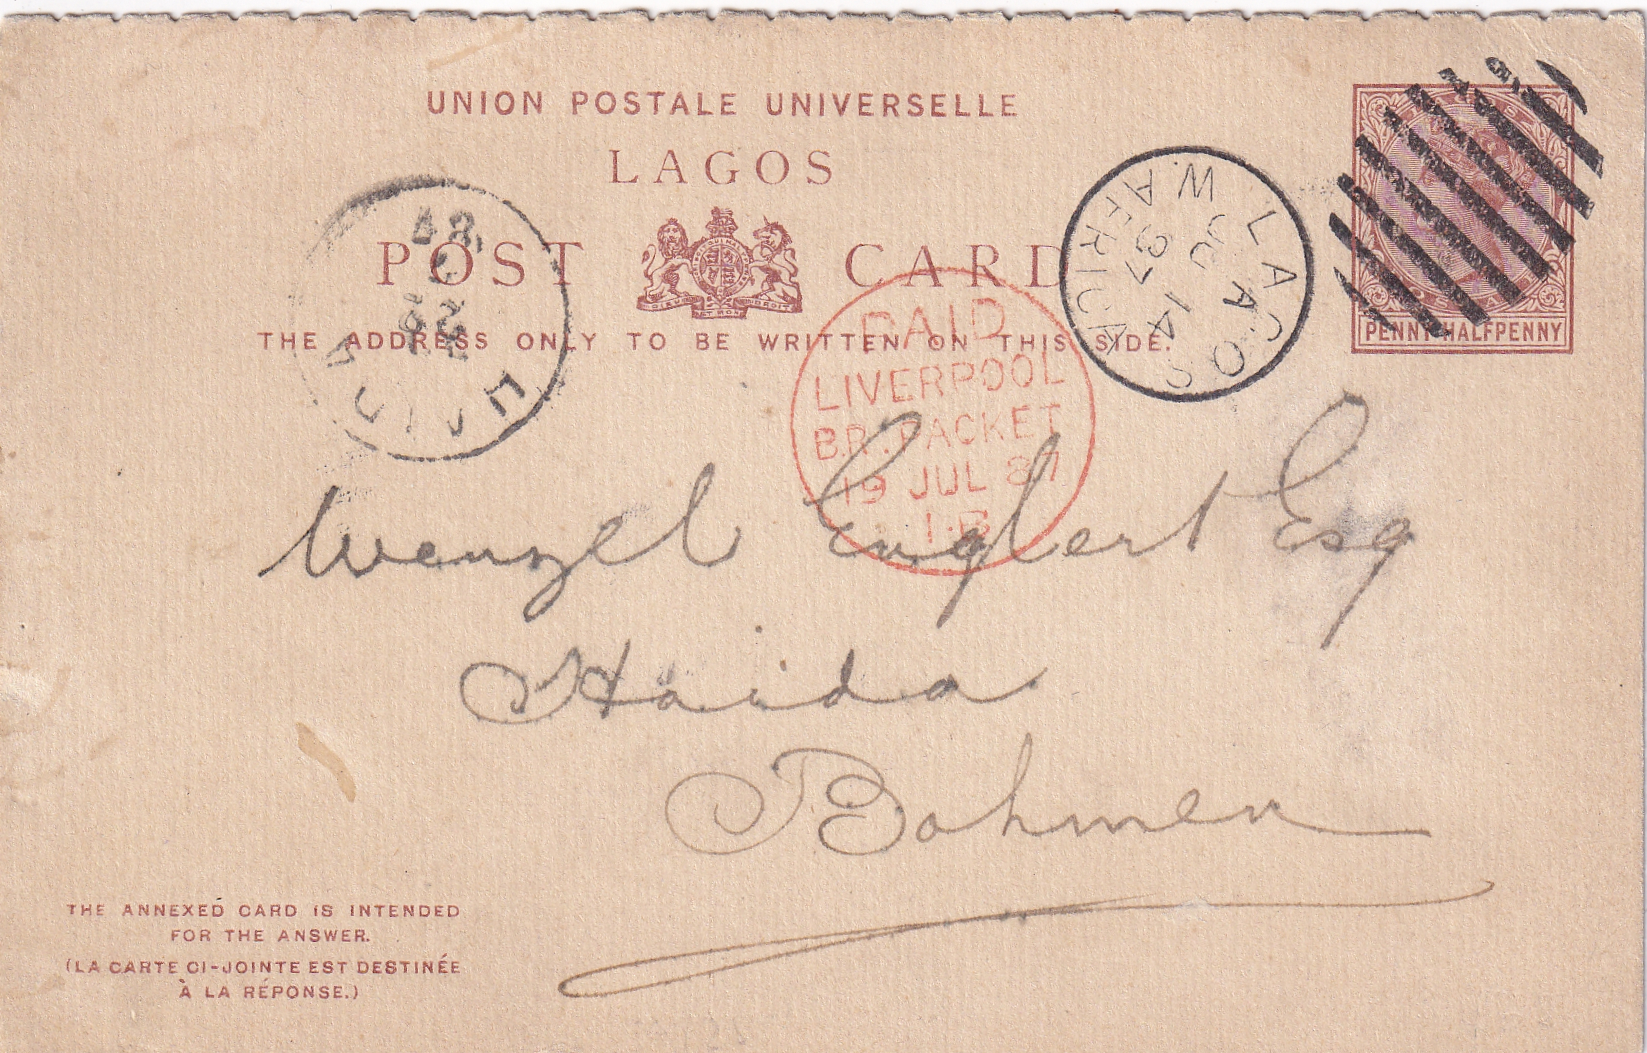 UNION POSTALE UNIVERSELLE
LAGOS
POST CARD
THE ADDRESS ONLY TO BE WRITTEN ON THIS SIDE.
PENNY HALFPENNY
LAGOS
A
JU 14
97
W. AFRICA
PAID
LIVERPOOL
BR. PACKET
19 JUL 87
1 B
HAIDA
22
7
87
Wenzel Englert Esq
Haida
Bohmen
THE ANNEXED CARD IS INTENDED
FOR THE ANSWER.
(LA CARTE CI-JOINTE EST DESTINÉE
À LA RÉPONSE.)